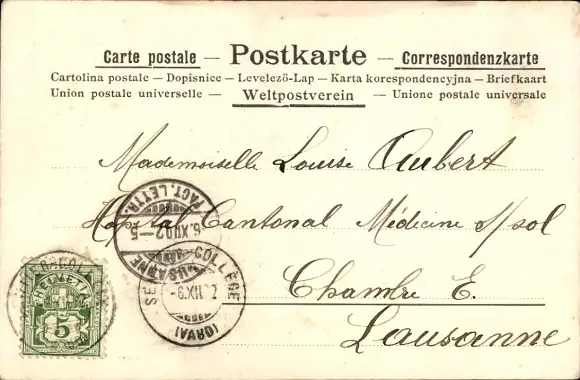 Carte postale — Postkarte — Correspondenzkarte
Cartolina postale — Dopisnice — Levelező-Lap — Karta korespondencyjna — Briefkaart
Union postale universelle — Weltpostverein — Unione postale universale
Mademoiselle Louise Aubert
Hôpital Cantonal Médecine s/sol
Chambre E.
Lausanne
FACT. LETTR.
6.XII.02 — 5
LAUSANNE
COLLÈGE
-6.XII. 2
(ORVAL)
HELVETIA
5